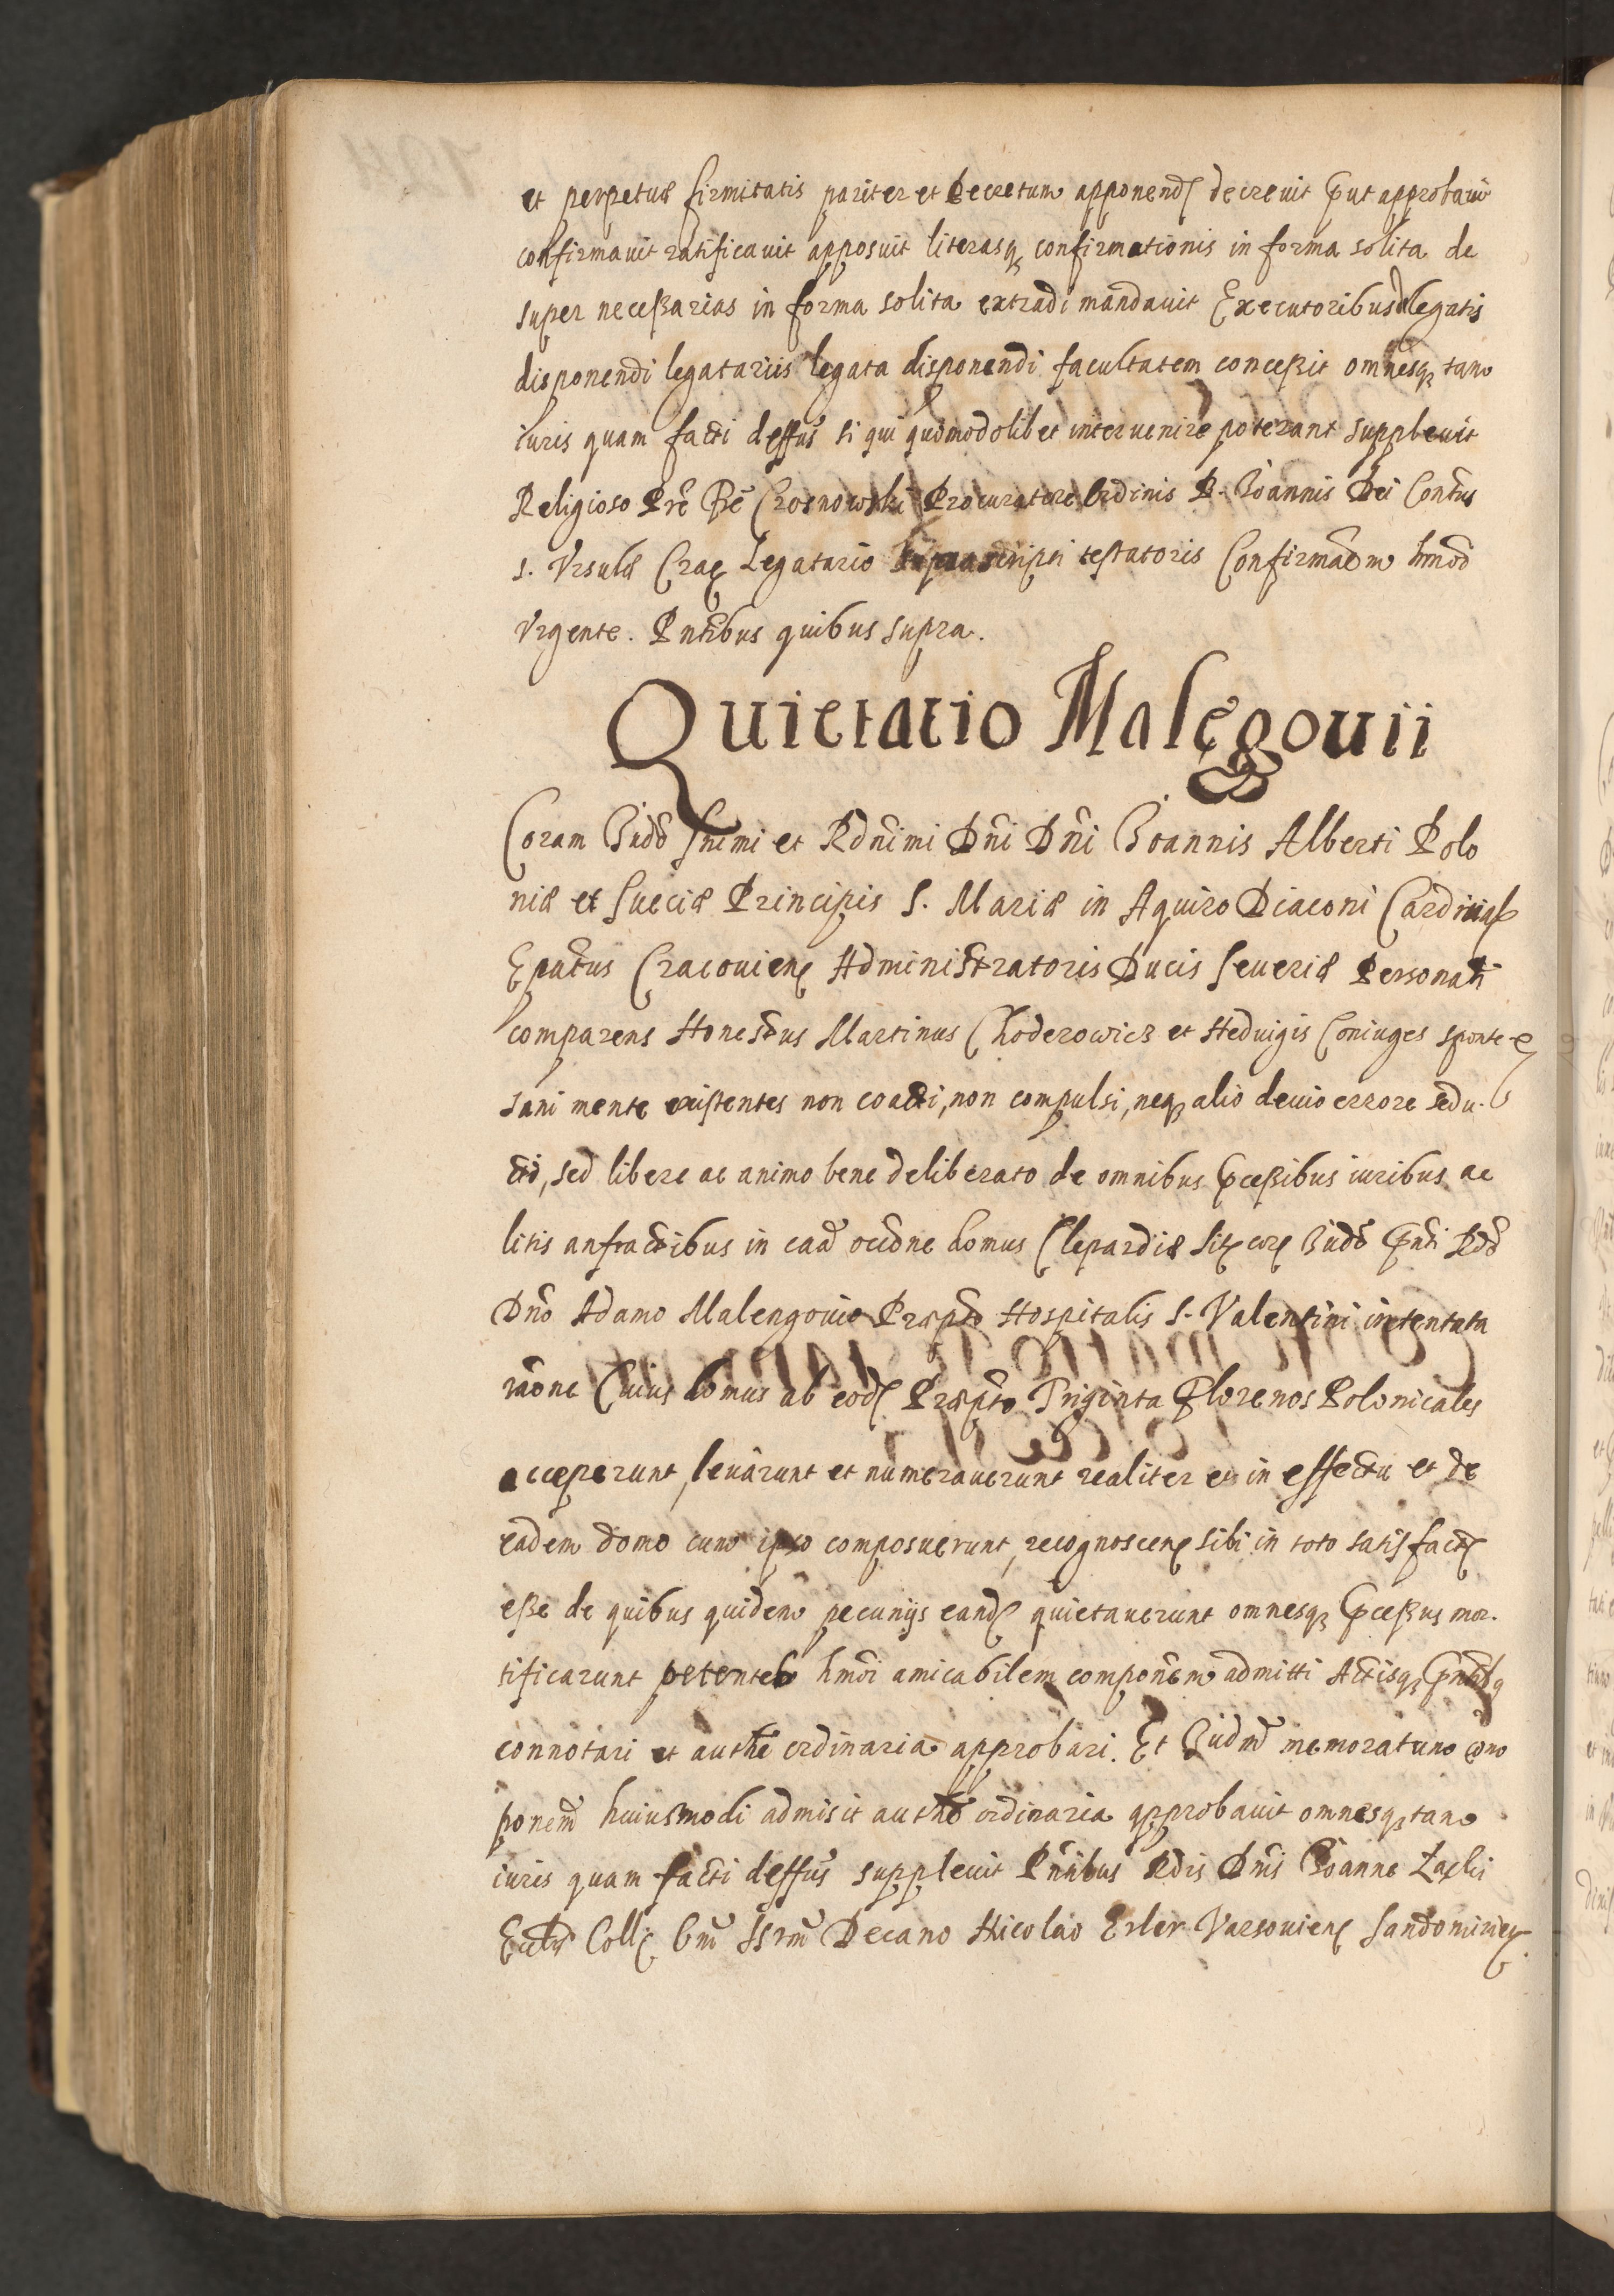 et perpetuæ firmitatis pariter et Decretum apponend decrevit Put approbavit
confirmavit ratificavit apposuit literasq confirmationis in forma solita de
super necessarias in forma solita extradi mandavit Executoribus legatis
disponendi legatariis legata disponendi facultatem concessit omnesq tam
iuris quam facti deffus si qui quomodolibet intervenire poterant supplevit
Religioso Pre Crosnowski Procuratore Ordinis B. Ioannis Dei Contus
S. Ursulæ Crac Legatario suprascripti testatoris Confirmãom hmod
Urgente. Pntibus quibus supra.
Quietatio Malegovii
Coram Iudo Snimi et Rdnimi Dni Dni Ioannis Alberti Polo
niæ et Sueciæ Principis S. Mariæ in Aquiro Diaconi Cardinal
Epatus Cracovien Administratoris Ducis Severiæ Personalr
comparens Honestus Martinus Choderowicz et Hedvigis Coniuges sponte
sani mente existentes non coacti, non compulsi, neq alio devio errore sedu-
cti, sed libere ac animo bene deliberato de omnibus Pcessibus iuribus ac
litis anfractibus in caã occne domus Clepardiæ Sit cor Iudo Pnti Rdo
Dno Adamo Malengovio Præpto Hospitalis S. Valentini intentata
raõne Cuius domus ab eod Præpto Triginta Florenos Polonicales
acceperunt, levârunt et numeraverunt realiter et in effectu et de
eadem domo cum ipso composuerunt, recognoscen sibi in toto satisfact
esse de quibus quidem pecunijs eand quietaverunt omnesq Pcessus mor-
tificarunt petentes hmõi amicabilem componem admitti Actisq Pntibq
connotari et authe ordinaria approbari. Et Iudm memoratum com
ponem huiusmodi admisit autho ordinaria approbavit omnesq tam
iuris quam facti deffus supplevit Pntibus Rdis Dnis Ioanne Zaelii
Eccl Coll Om SSrm Decano Nicolao Erler Varsovien Sandomirien